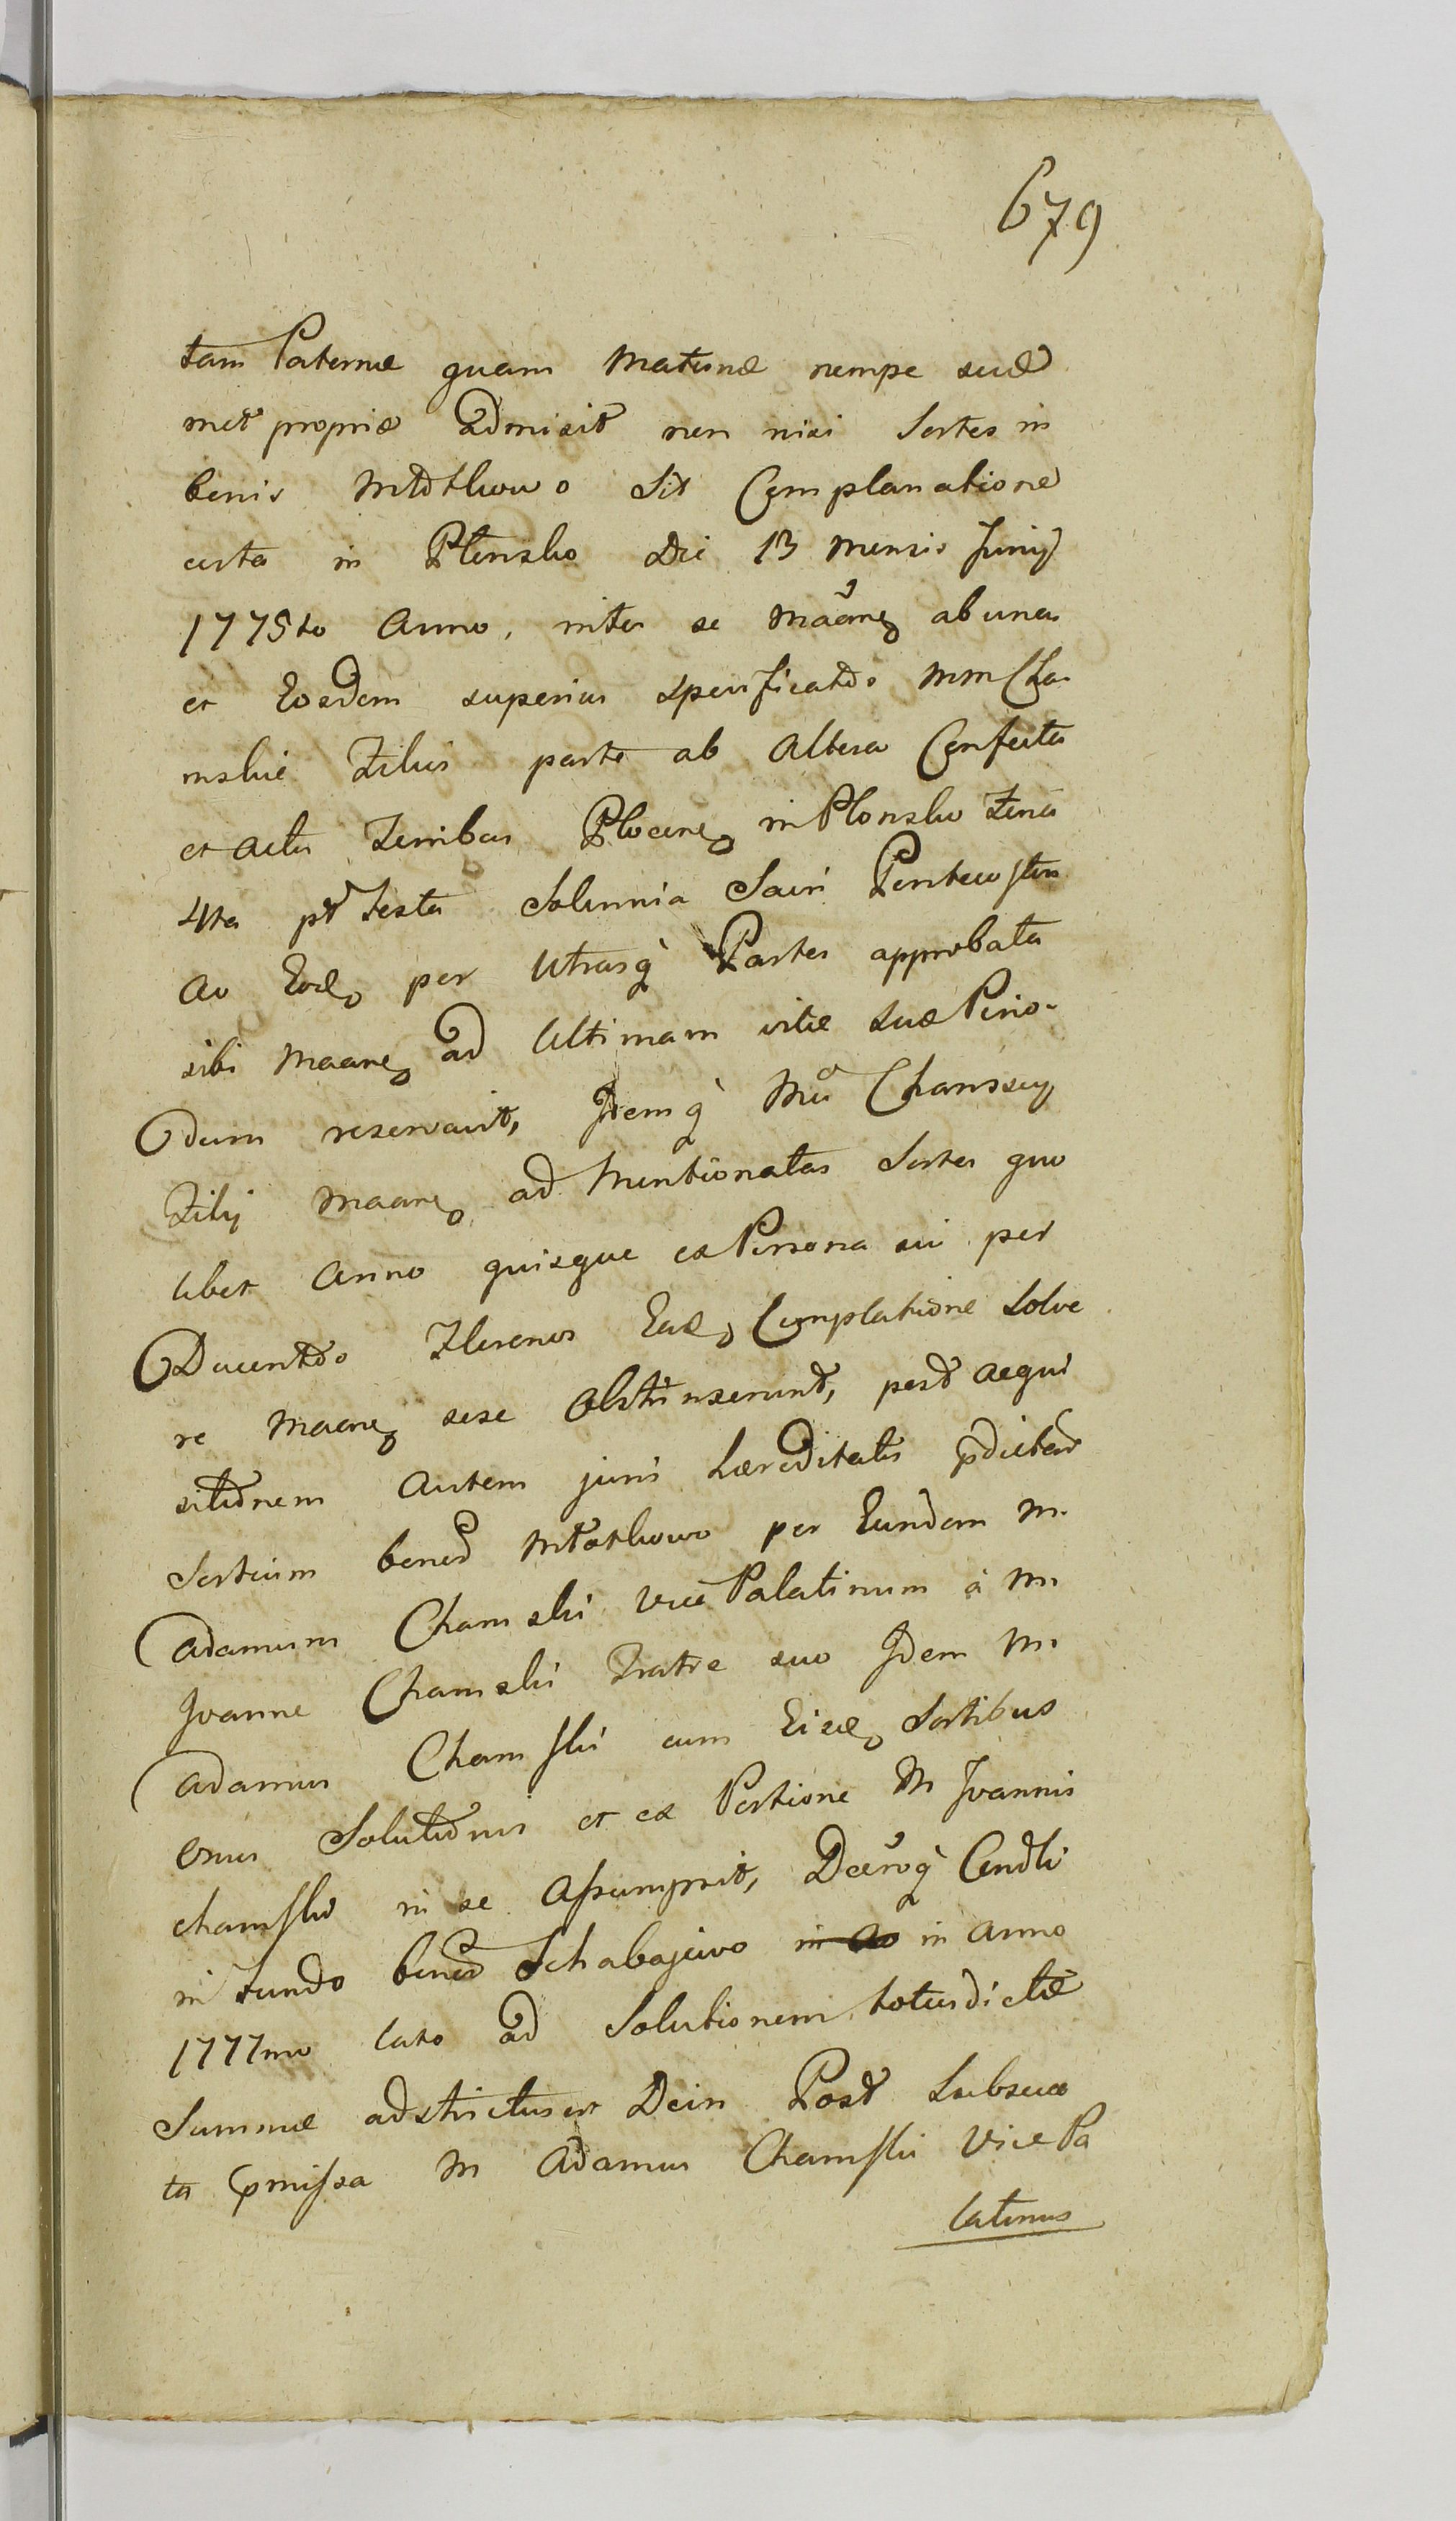 679
tam Paternæ quam Maternæ nempe suæ
met propriæ admisit non nisi Sortes in
bonis Młodkowo Sit Complanatione
certa in Płonsko Die 13 mensis Junij
1775to Anno, inter se maõne abuna
et Eosdem superius specificatos MM Cha
mskie Filios parte ab Altera Confecta
et Actis Terribus Plocen in Płonsko Feria
4ta pt Festa Solennia Sacri Pentecosten
Ao Eod per Utrasq Partes approbata
sibi maane ad Ultimam vitæ Suæ Perio-
dum reservavit, Idemq M Chamscy
Filij maane ad Mentionatas Sortes quo
libet Anno quisque ex Persona sui per
Ducentos Florenos Ead Complatione Solve
re maane sese Obstrinxerunt, post Acqui
sitionem Autem juris hæreditatis pdictar
Sortium bonor Młodkowo per Eundem M.
Adamum Chamski Vice Palatinum à M.
Joanne Chamski Fratre suo Idem M.
Adamus Chamski cum Eisd Sortibus
Onus Solutionis et ex Portione M Joannis
Chamski in se Assumpsit, Decroq Condli
in Fundo bonor Schabajewo in Anno
1777mo lato ad Solutionem totiesdictæ
Summæ adstrictus est Dein Post Subsecu
ta pmissa M Adamus Chamski Vice Pa
latinus